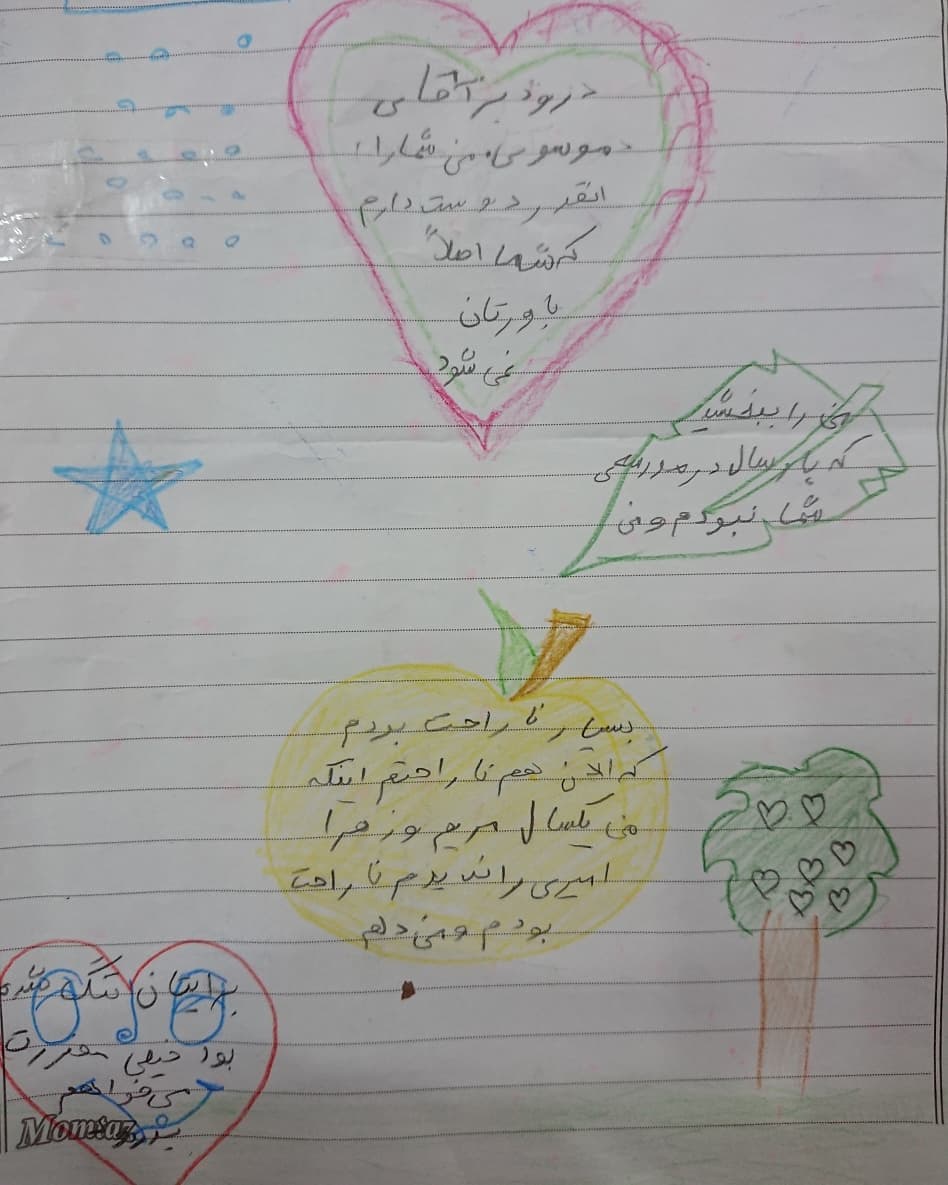 درود بر آقای
موسوی. من شما را
انقدر دوست دارم
که شما اصلاً
باورتان
نمی شود
من را ببخشید
که پارسال در مدرسه ی
شما نبودم و من
بسیار نا راحت بودم
که الان هم نا راحتم اینکه
من یکسال مریم و زهرا
امیری را ندیدم نا راحت
بودم و من دلم
برایتان تنگ شده
بود خیلی معذرت
می خواهم
بدرود